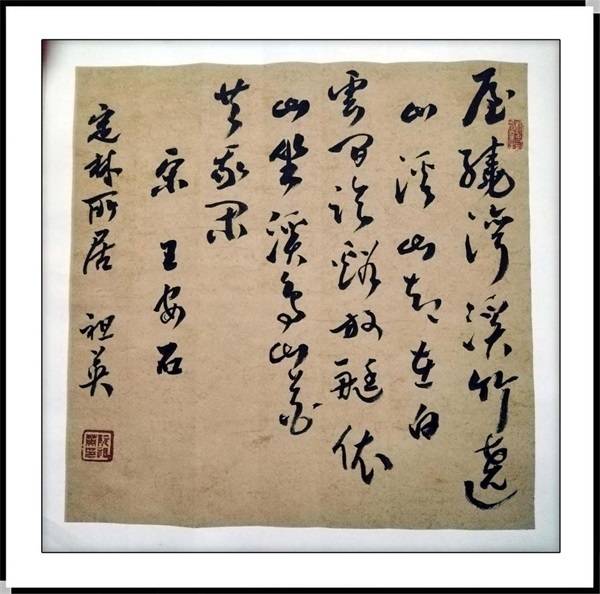 屋繞灣溪竹遶
山溪山却在白
雲間臨谿放艇依
山坐溪鳥山花
共我閑
宋 王安石
定林所居 祖英